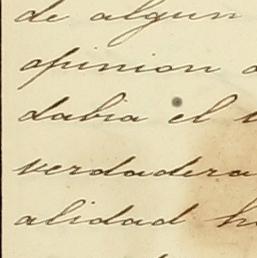 de algun
opinion
dabia el
verdadera
alidad